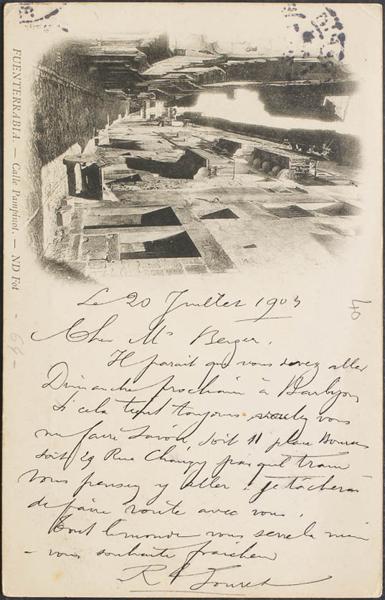 FUENTERRABIA. — Calle Pampinot. — ND Fot
Le 20 Juillet 1903
Cher Mr Berger.
Il parait que vous devez aller
Dimanche prochain à
Si cela tient toujours voulez vous
me faire savoir soit 11 place
soit 29 Rue par quel train
vous pensez y aller. je tâcherai
de faire route avec vous.
Tout le monde vous serre la main
vous souhaite
40
64